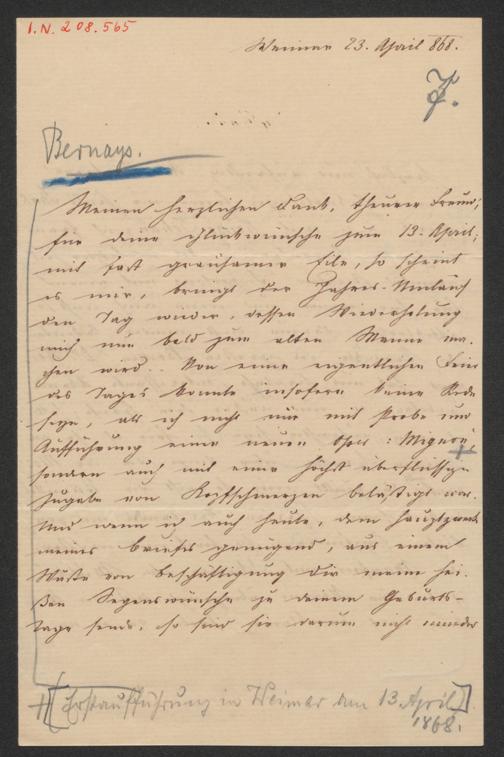 I.N. 208.565
Weimar 23. April 868.
7.
Bernays.
Meinen herzlichen Dank, theurer Freund,
für deine Glückwünsche zum 13. April;
mit fast grausamer Eile, so scheint
es mir, bringt der Jahres-Umlauf
den Tag wieder, dessen Wiederholung
mich nun bald zum alten Manne ma-
chen wird. Von einer eigentlichen Feier
des Tages konnte insofern keine Rede
seyn, als ich nicht nur mit Probe und
Aufführung einer neuen Oper: Mignon +
sondern auch mit einer höchst überflüssigen
Zugabe von Kopfschmerzen belästigt war.
Und wenn ich auch heute, dem Hauptzweck
meines Briefes genügend, aus einem
Wuste von Beschäftigung Dir meine hei-
ßen Segenswünsche zu deinem Geburts-
tage sende, so sind sie darum nicht minder
+ [Erstaufführung in Weimar am 13. April
1868.]